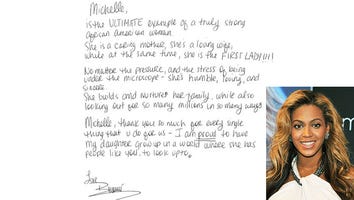 Michelle,
is the ULTIMATE example of a truly strong
african american woman.
She is a caring mother, she's a loving wife,
while at the same time, she is the FIRST LADY!!!!
No matter the pressure, and the stress of being
under the microscope - she's humble, loving, and
sincere.
She builds and nurtures her family, while also
looking out for so many millions in so many ways.
Michelle, thank you so much for every single
thing that u do for us - I am proud to have
my daughter grow up in a world where she has
people like you, to look up to.
Love